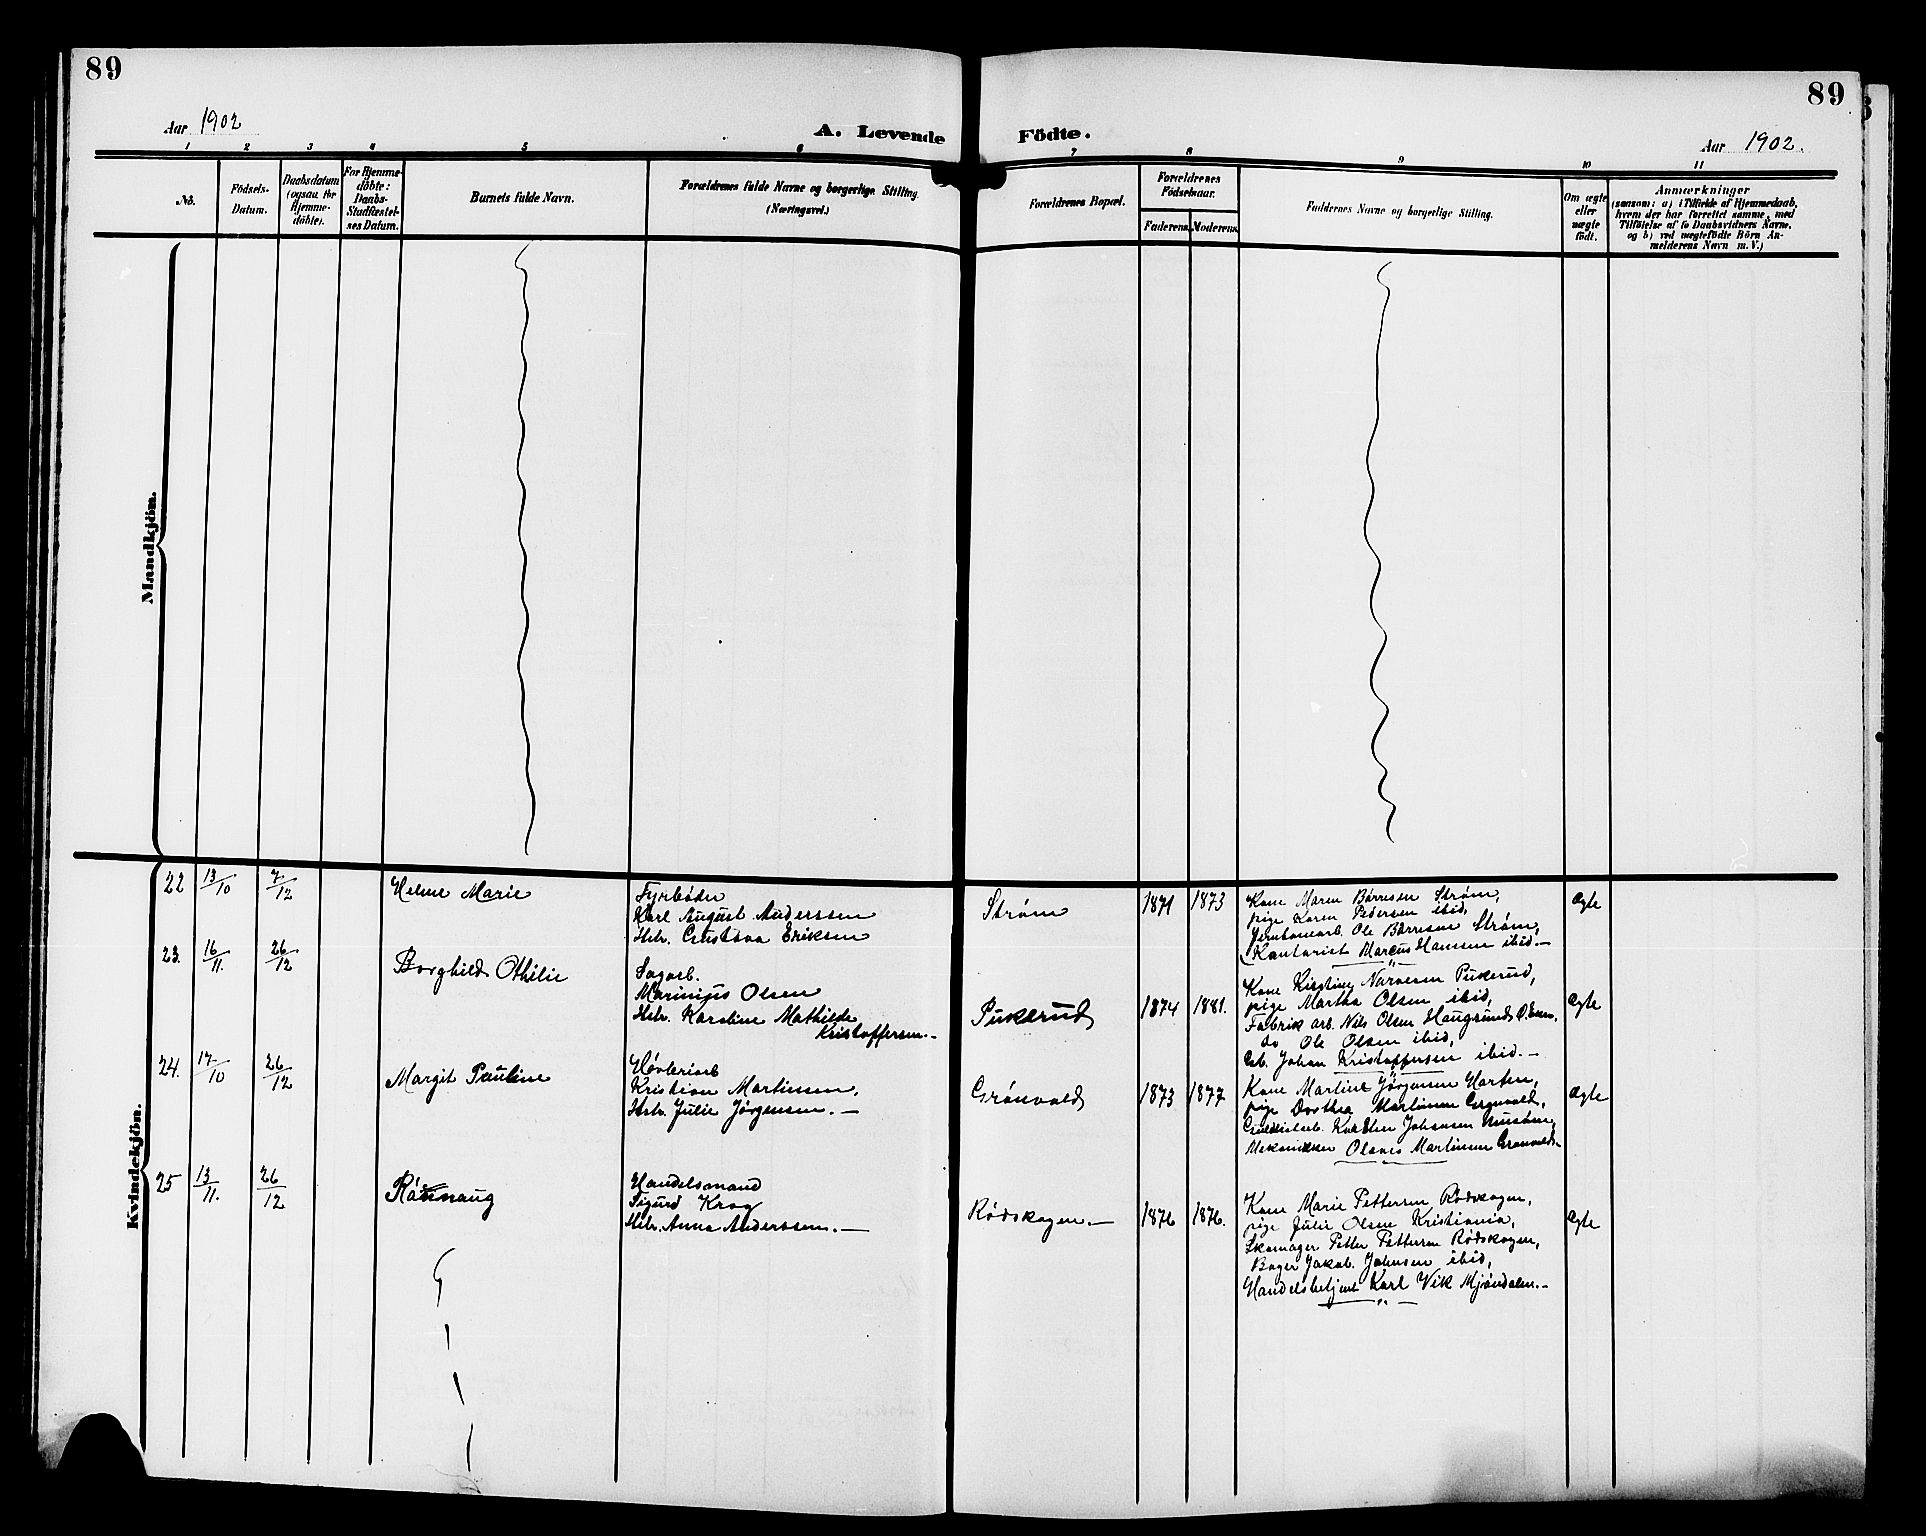 89
89
Aar 1902
A. Levende Födte.
Aar 1902.
1 2 3 4 5 6 7 8 9 10 11
No.
Födsels-
Datum.
Daabsdatum
(ogsaa for
Hjemme-
döbte).
For Hjemme-
döbte:
Daabs-
Stadfæstel-
ses Datum.
Barnets fulde Navn.
Forældrenes fulde Navne og borgerlige Stilling.
(Næringsvei.)
Forældrenes Bopæl.
Forældrenes
Födselsaar.
Faderens.
Moderens.
Faddernes Navne og borgerlige Stilling.
Om ægte
eller
uægte
födt.
Anmærkninger
(saasom: a) i Tilfælde af Hjemmedaab,
hvem der har forrettet samme, med
Tilföielse af to Daabsvidners Navne,
og b) ved uægtefödte Börn An-
melderens Navn m. V.)
Mandkjön.
Kvindekjön.
22 13/10 7/12
Helene Marie
Fyrbøder
Karl August Anderssen
Hstr. Gustava Eriksen
Strøm
1871 1873
Kone Maren Børresen Strøm,
pige Karen Pedersen ibid,
Jernbanearb. Ole Børresen Strøm,
Kontorist Marcus Hansen ibid.—
Ægte
23. 16/11. 26/12
Borghild Othilie
Sagarb.
Marinius Olsen
Hstr. Karoline Mathilde
Kristoffersen.—
Pukerud
1874 1881.
Kone Kirstine Narvesen Pukerud,
pige Martha Olsen ibid,
Fabrik arb. Nils Olsen Haugsund
do Ole Olsen ibid,
Arb. Johan Kristoffersen ibid.—
Ægte
24. 17/10 26/12
Margit Pauline
Høvleriarb
Kristian Martinsen,
Hstr. Julie Jørgensen.—
Grønvold
1873 1877
Kone Martine Jørgensen Horten,
pige Dorthea Martinsen Grønvold,
Johansen
Mekaniker Olaves Martinsen Grønvold.—
Ægte
25 13/11. 26/12
Raunaug
Handelsmand
Sigurd Krog
Hstr. Anna Anderssen.—
Rødskogen.—
1876 1876.
Kone Marie Pettersen Rødskogen,
pige Julie Olsen Kristiania,
Skomager Petter Pettersen Rødskogen,
Bager Jakob Johnsen ibid,
Handelsbetjent Karl Vik Mjøndalen.—
Ægte